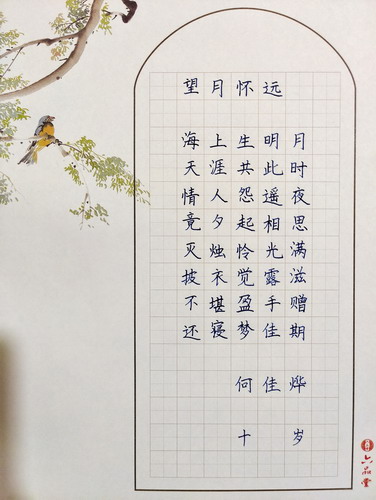 望月怀远
海上生明月
天涯共此时
情人怨遥夜
竟夕起相思
灭烛怜光满
披衣觉露滋
不堪盈手赠
还寝梦佳期
何佳烨
十岁
六品堂